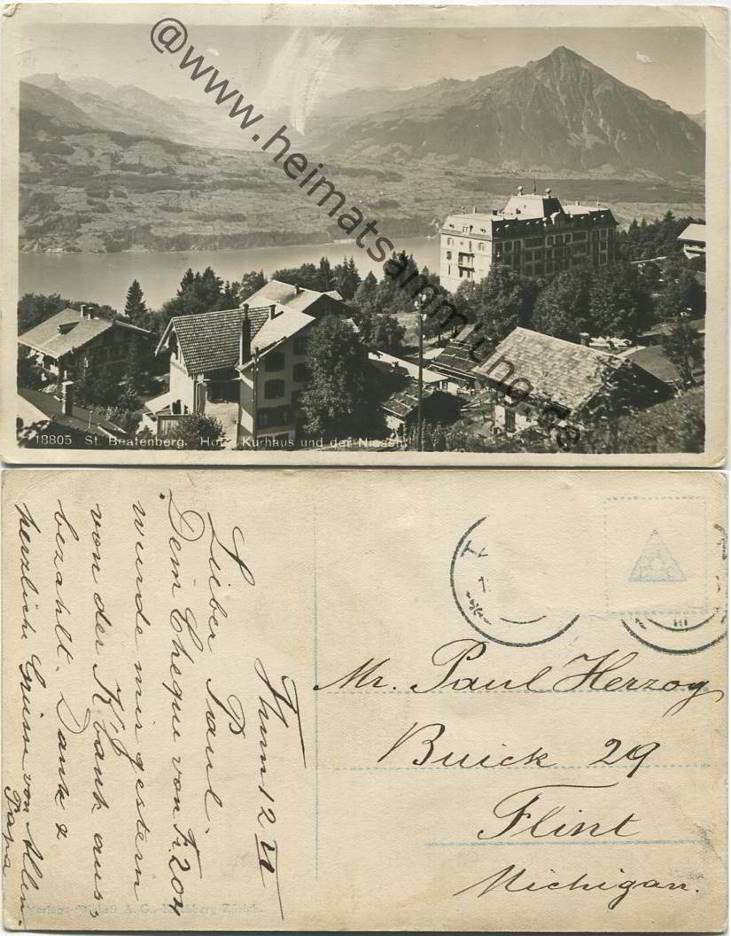 @www.heimatsammlung.de
18805 St. Beatenberg. Hotel Kurhaus und der Niesen
Thun 12 VI
Lieber Paul.
Dein Cheque von Fr. 204
wurde mir gestern
von der K. Bank aus-
bezahlt. Dank &
herzliche Grüsse von Allen.
Papa
Mr. Paul Herzog
Buick 29
Flint
Michigan.
A. G., Kilchberg-Zürich.